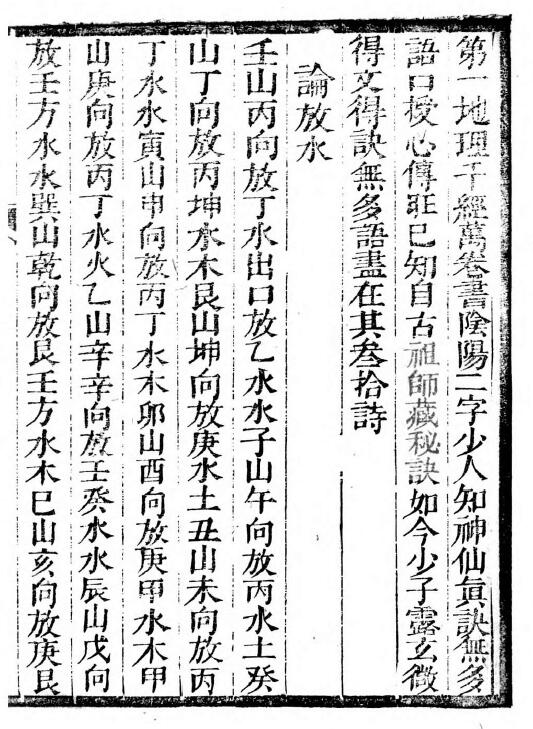 第一地理千經萬卷書陰陽二字少人知神仙眞訣無多
語口授心傳在巳知自古祖師藏秘訣如今少子露玄微
得文得訣無多語盡在其叁拾詩
論放水
壬山丙向放丁水出口放乙水水子山午向放丙水土癸
山丁向放丙坤水木艮山坤向放庚水土丑山未向放丙
丁水水寅山申向放丙丁水木卯山酉向放庚甲水木甲
山庚向放丙丁水火乙山辛辛向放壬癸水水辰山戊向
放壬方水水巽山乾向放艮壬方水木巳山亥向放庚艮